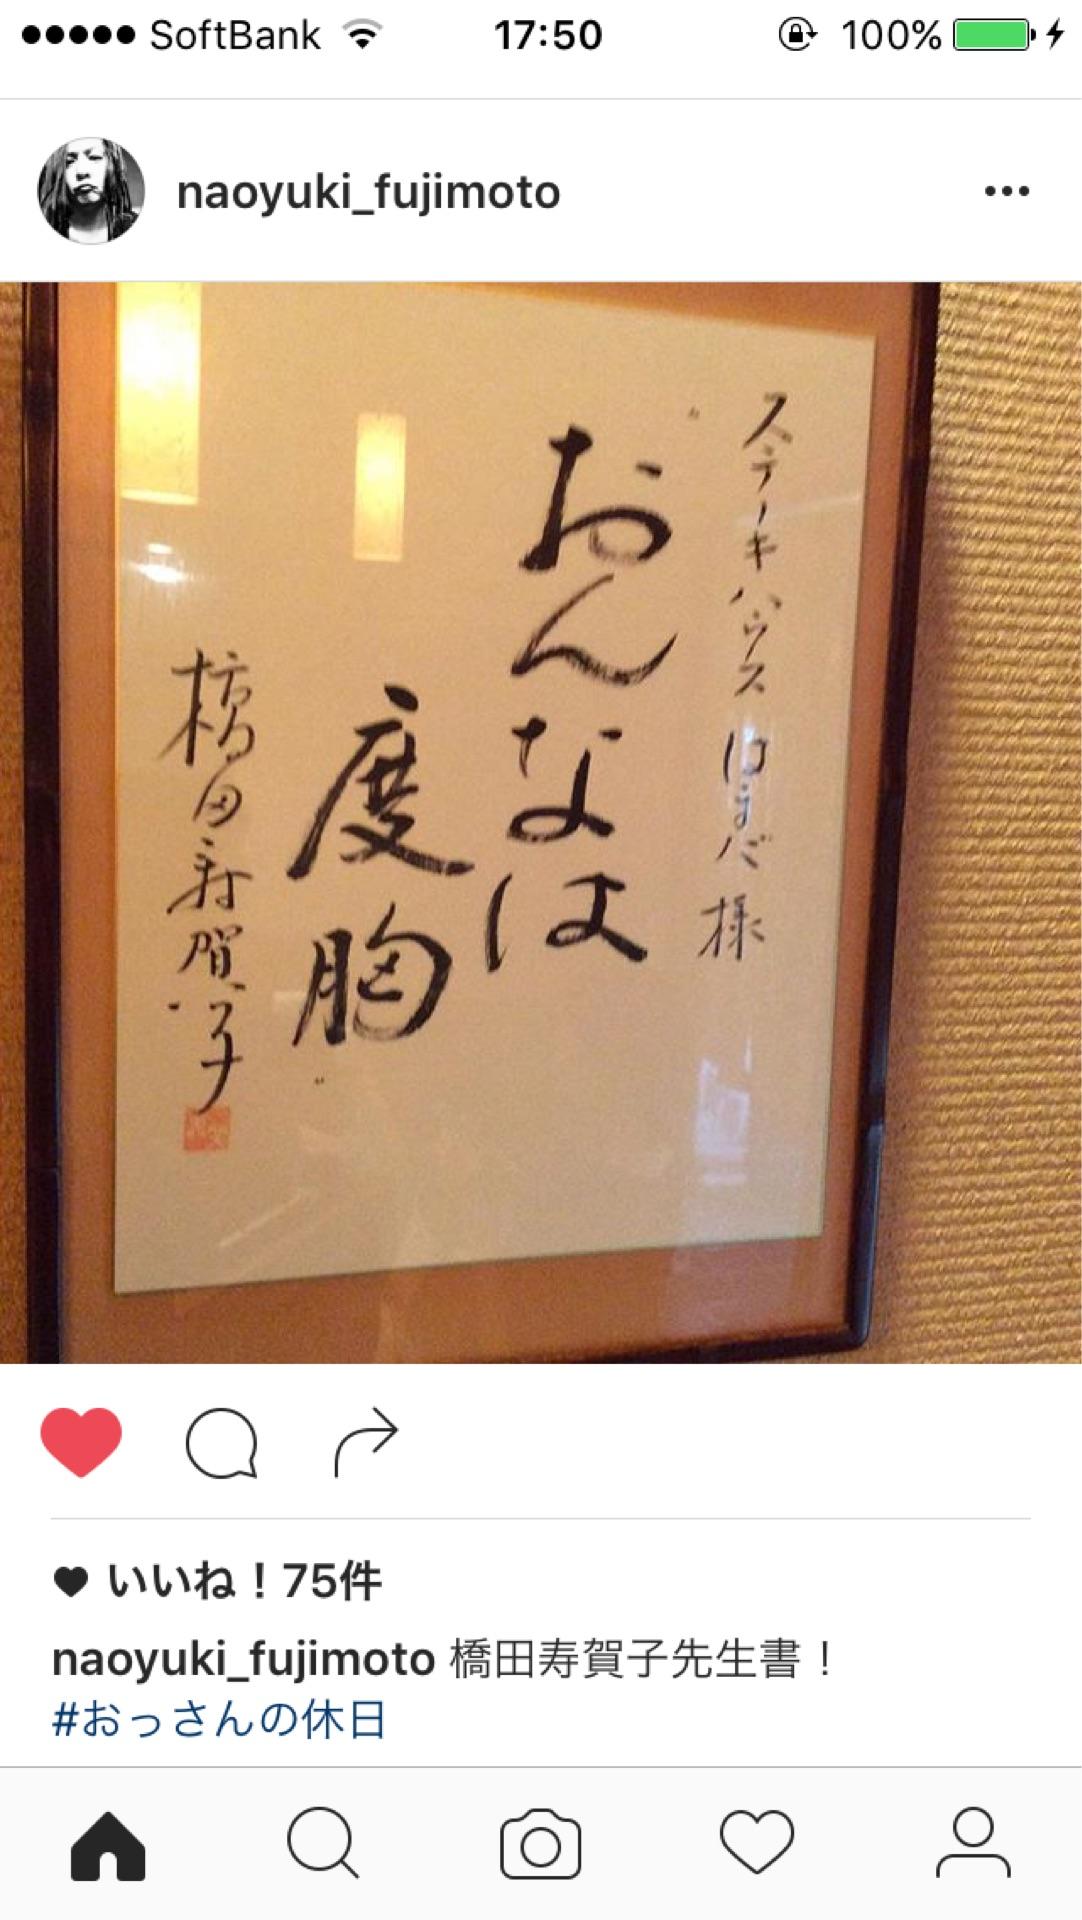 SoftBank 17:50 100%
naoyuki_fujimoto
ステーキハウス はまだ 様
“おんなは
度胸”
橋田寿賀子
いいね！75件
naoyuki_fujimoto 橋田寿賀子先生書！
#おっさんの休日